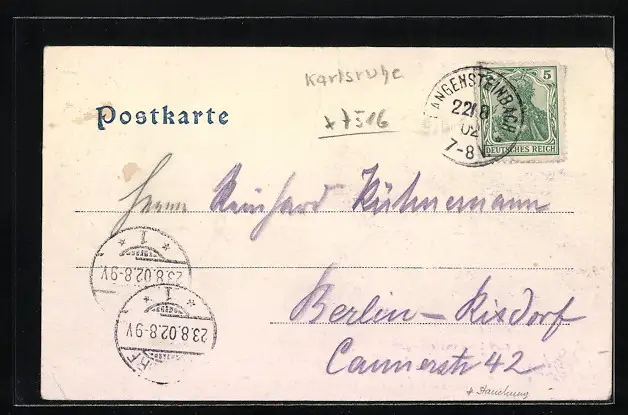 Karlsruhe
Postkarte
* 7516
LANGENSTEINBACH
22 8
02
7-8V
5
DEUTSCHES REICH
Herrn Reinhard Kühnemann
1
23.8.02.8-9V
1
23.8.02.8-9V
Berlin-Rixdorf
Cannerstr 42